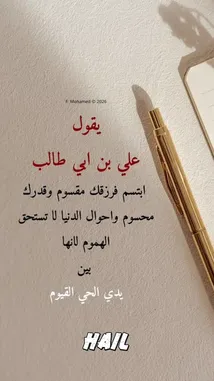 F. Mohamed © 2024
يقول
علي بن ابي طالب
ابتسم فرزقك مقسوم وقدرك
محسوم واحوال الدنيا لا تستحق
الهموم لانها
بين
يدي الحي القيوم
HAIL